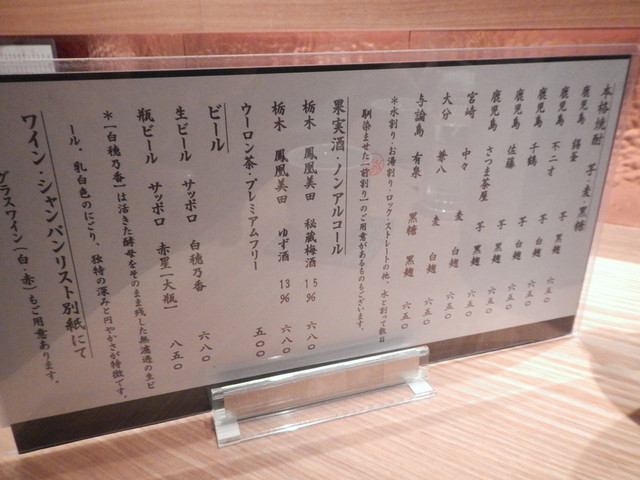 本格焼酎 芋・麦・黒糖
鹿児島 芋 黒麹 六五〇
鹿児島 不二才 芋 白麹 六五〇
鹿児島 千鶴 芋 白麹 六五〇
鹿児島 佐藤 芋 白麹 六五〇
鹿児島 さつま茶屋 芋 黒麹 六五〇
宮崎 中々 麦 白麹 六五〇
大分 兼八 麦 白麹 六五〇
与論島 有泉 黒糖 黒麹 六五〇
*水割り・お湯割り・ロック・ストレートの他、水と割って数日
馴染ませた【前割り】のご用意があるものもございます。
果実酒・ノンアルコール
栃木 鳳凰美田 秘蔵梅酒 15% 六八〇
栃木 鳳凰美田 ゆず酒 13% 六八〇
ウーロン茶・プレミアムフリー 五〇〇
ビール
生ビール サッポロ 白穂乃香 六八〇
瓶ビール サッポロ 赤星【大瓶】 八五〇
*【白穂乃香】は活きた酵母をそのまま残した無濾過の生ビ
ール。乳白色のにごり、独特の深みと円やかさが特徴です。
ワイン・シャンパンリスト別紙にて
グラスワイン(白・赤)もご用意あります。